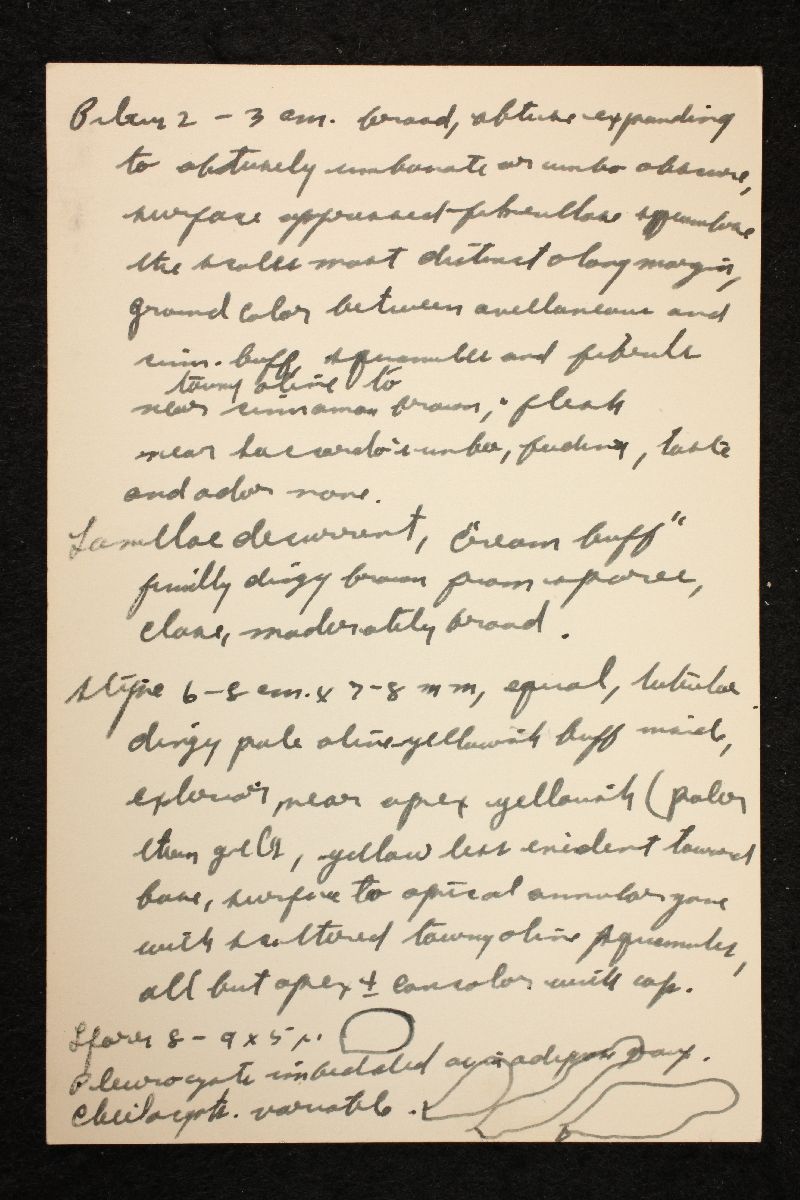 Pileus 2 - 3 cm. broad, obtuse expanding
to obtusely umbonate or umbo obscure,
surface appressed-fibrillose squamulose
the scales most distinct along margin,
ground color between avellaneous and
cinn. buff, squamules and fibrils
tawny olive to
near cinnamon brown, flesh
near saccardo's umber, fading, taste
and odor none.
Lamellae decurrent, "cream buff"
finally dingy brown from spores,
close, moderately broad.
Stipe 6-8 cm. x 7-8 mm, equal, tubular
dingy pale olive-yellowish buff inside,
exterior near apex yellowish (paler
than gills, yellow less evident toward
base, surface to apical annular zone
with scattered tawny olive squamules,
all but apex ± concolor with cap.
Spores 8-9 x 5 µ.
Pleurocysts imbedded
Cheilocysts. variable.